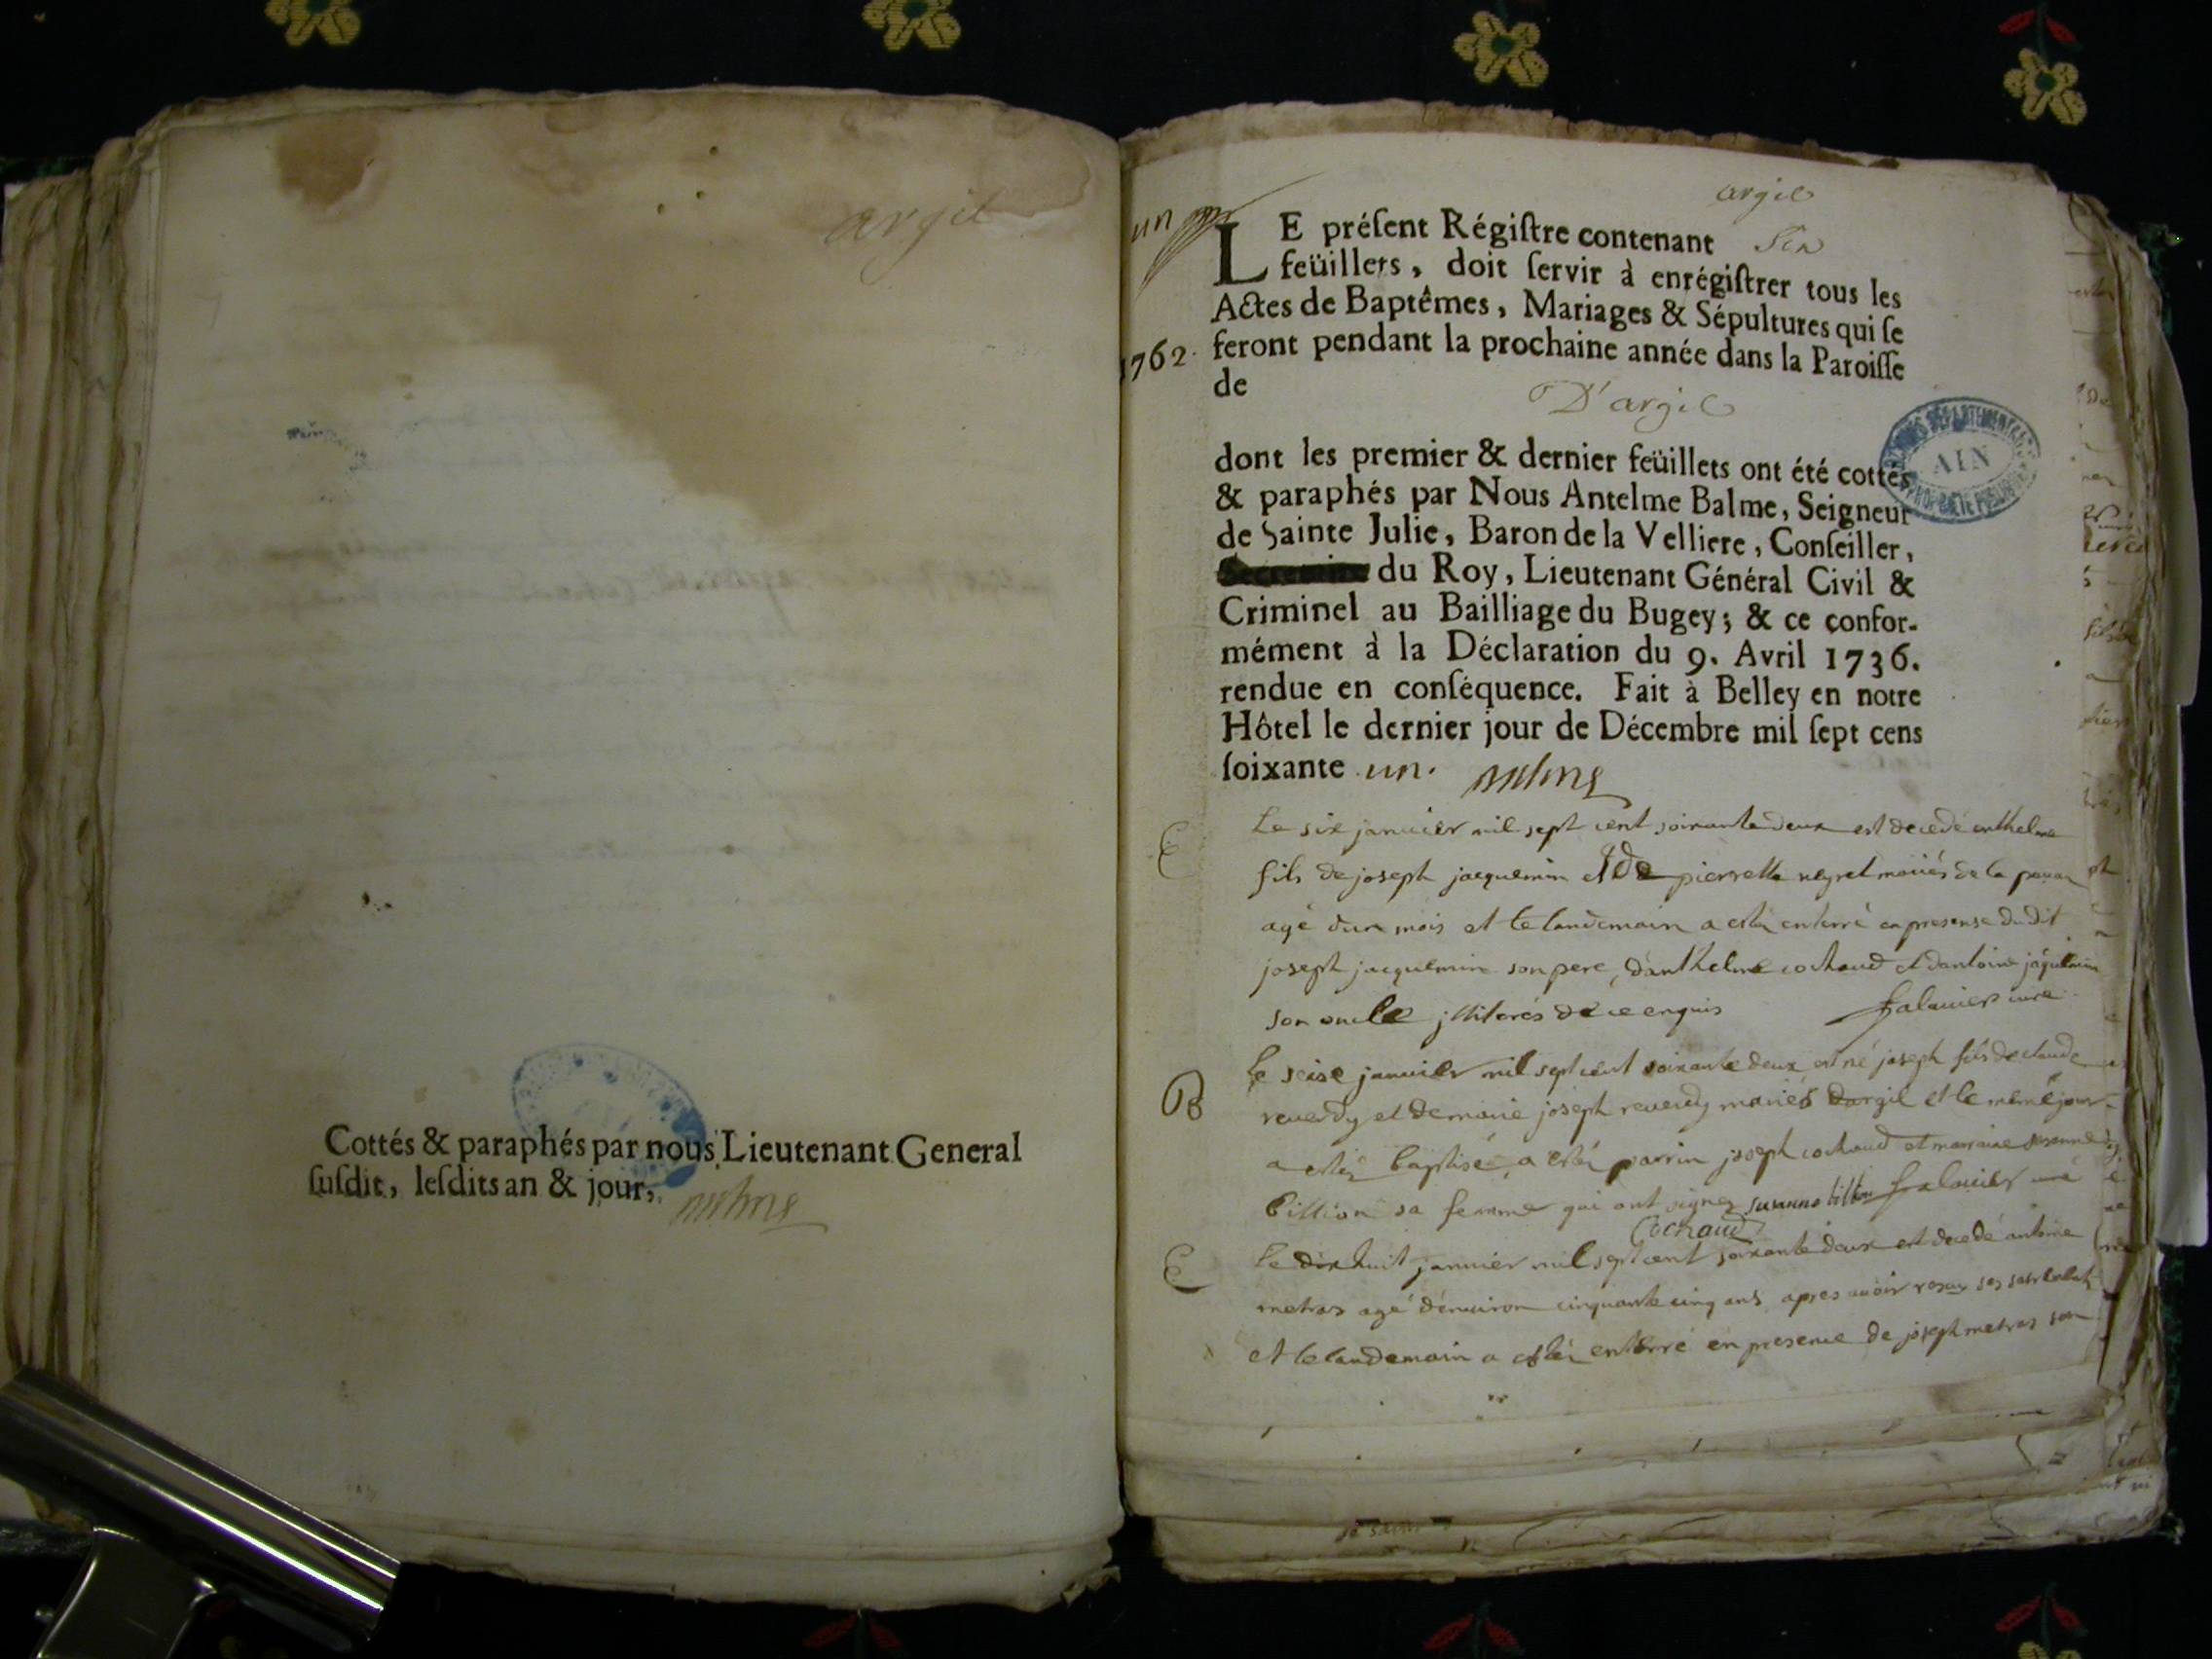 argil
Cottés & paraphés par nous Lieutenant General
ſuſdit, leſdits an & jour,
argil
un
LE préſent Régiſtre contenant Six
feüillets, doit ſervir à enrégiſtrer tous les
Actes de Baptêmes, Mariages & Sépultures qui ſe
1762. feront pendant la prochaine année dans la Paroiſſe
de
D'argil
dont les premier & dernier feüillets ont été cottés
& paraphés par Nous Antelme Balme, Seigneur
de Sainte Julie, Baron de la Velliere, Conſeiller,
du Roy, Lieutenant Général Civil &
Criminel au Bailliage du Bugey; & ce confor-
mément à la Déclaration du 9. Avril 1736.
rendue en conſéquence. Fait à Belley en notre
Hôtel le dernier jour de Décembre mil ſept cens
ſoixante un.
ARCHIVES DÉPARTEMENTALES
AIN
E Le six janvier mil sept cent soixante deux est decedé anthelme
fils de joseph jacquemin et de pierrette neyret mariés de la
agé dun mois et le landemain a esté enterré en presense dudit
joseph jacquemin son pere, danthelme cochaud et dantoine jaquemin
son oncle jlliterés de ce enquis falavier curé
B Le seise janvier mil sept cent soixante deux est né joseph fils de claude
reverdy et de marie joseph reverdy mariés dargil et le même jour
a esté baptisé, a esté parrin joseph cochaud et marraine susanne
billion sa femme qui ont signez susanne billion falavier curé
Cochaud
E le dix huit janvier mil sept cent soixante deux est decedé antoine
metras agé d'environ cinquante cinq ans apres avoir resçu ses sacrements
et le landemain a esté enterré en presence de joseph metras son